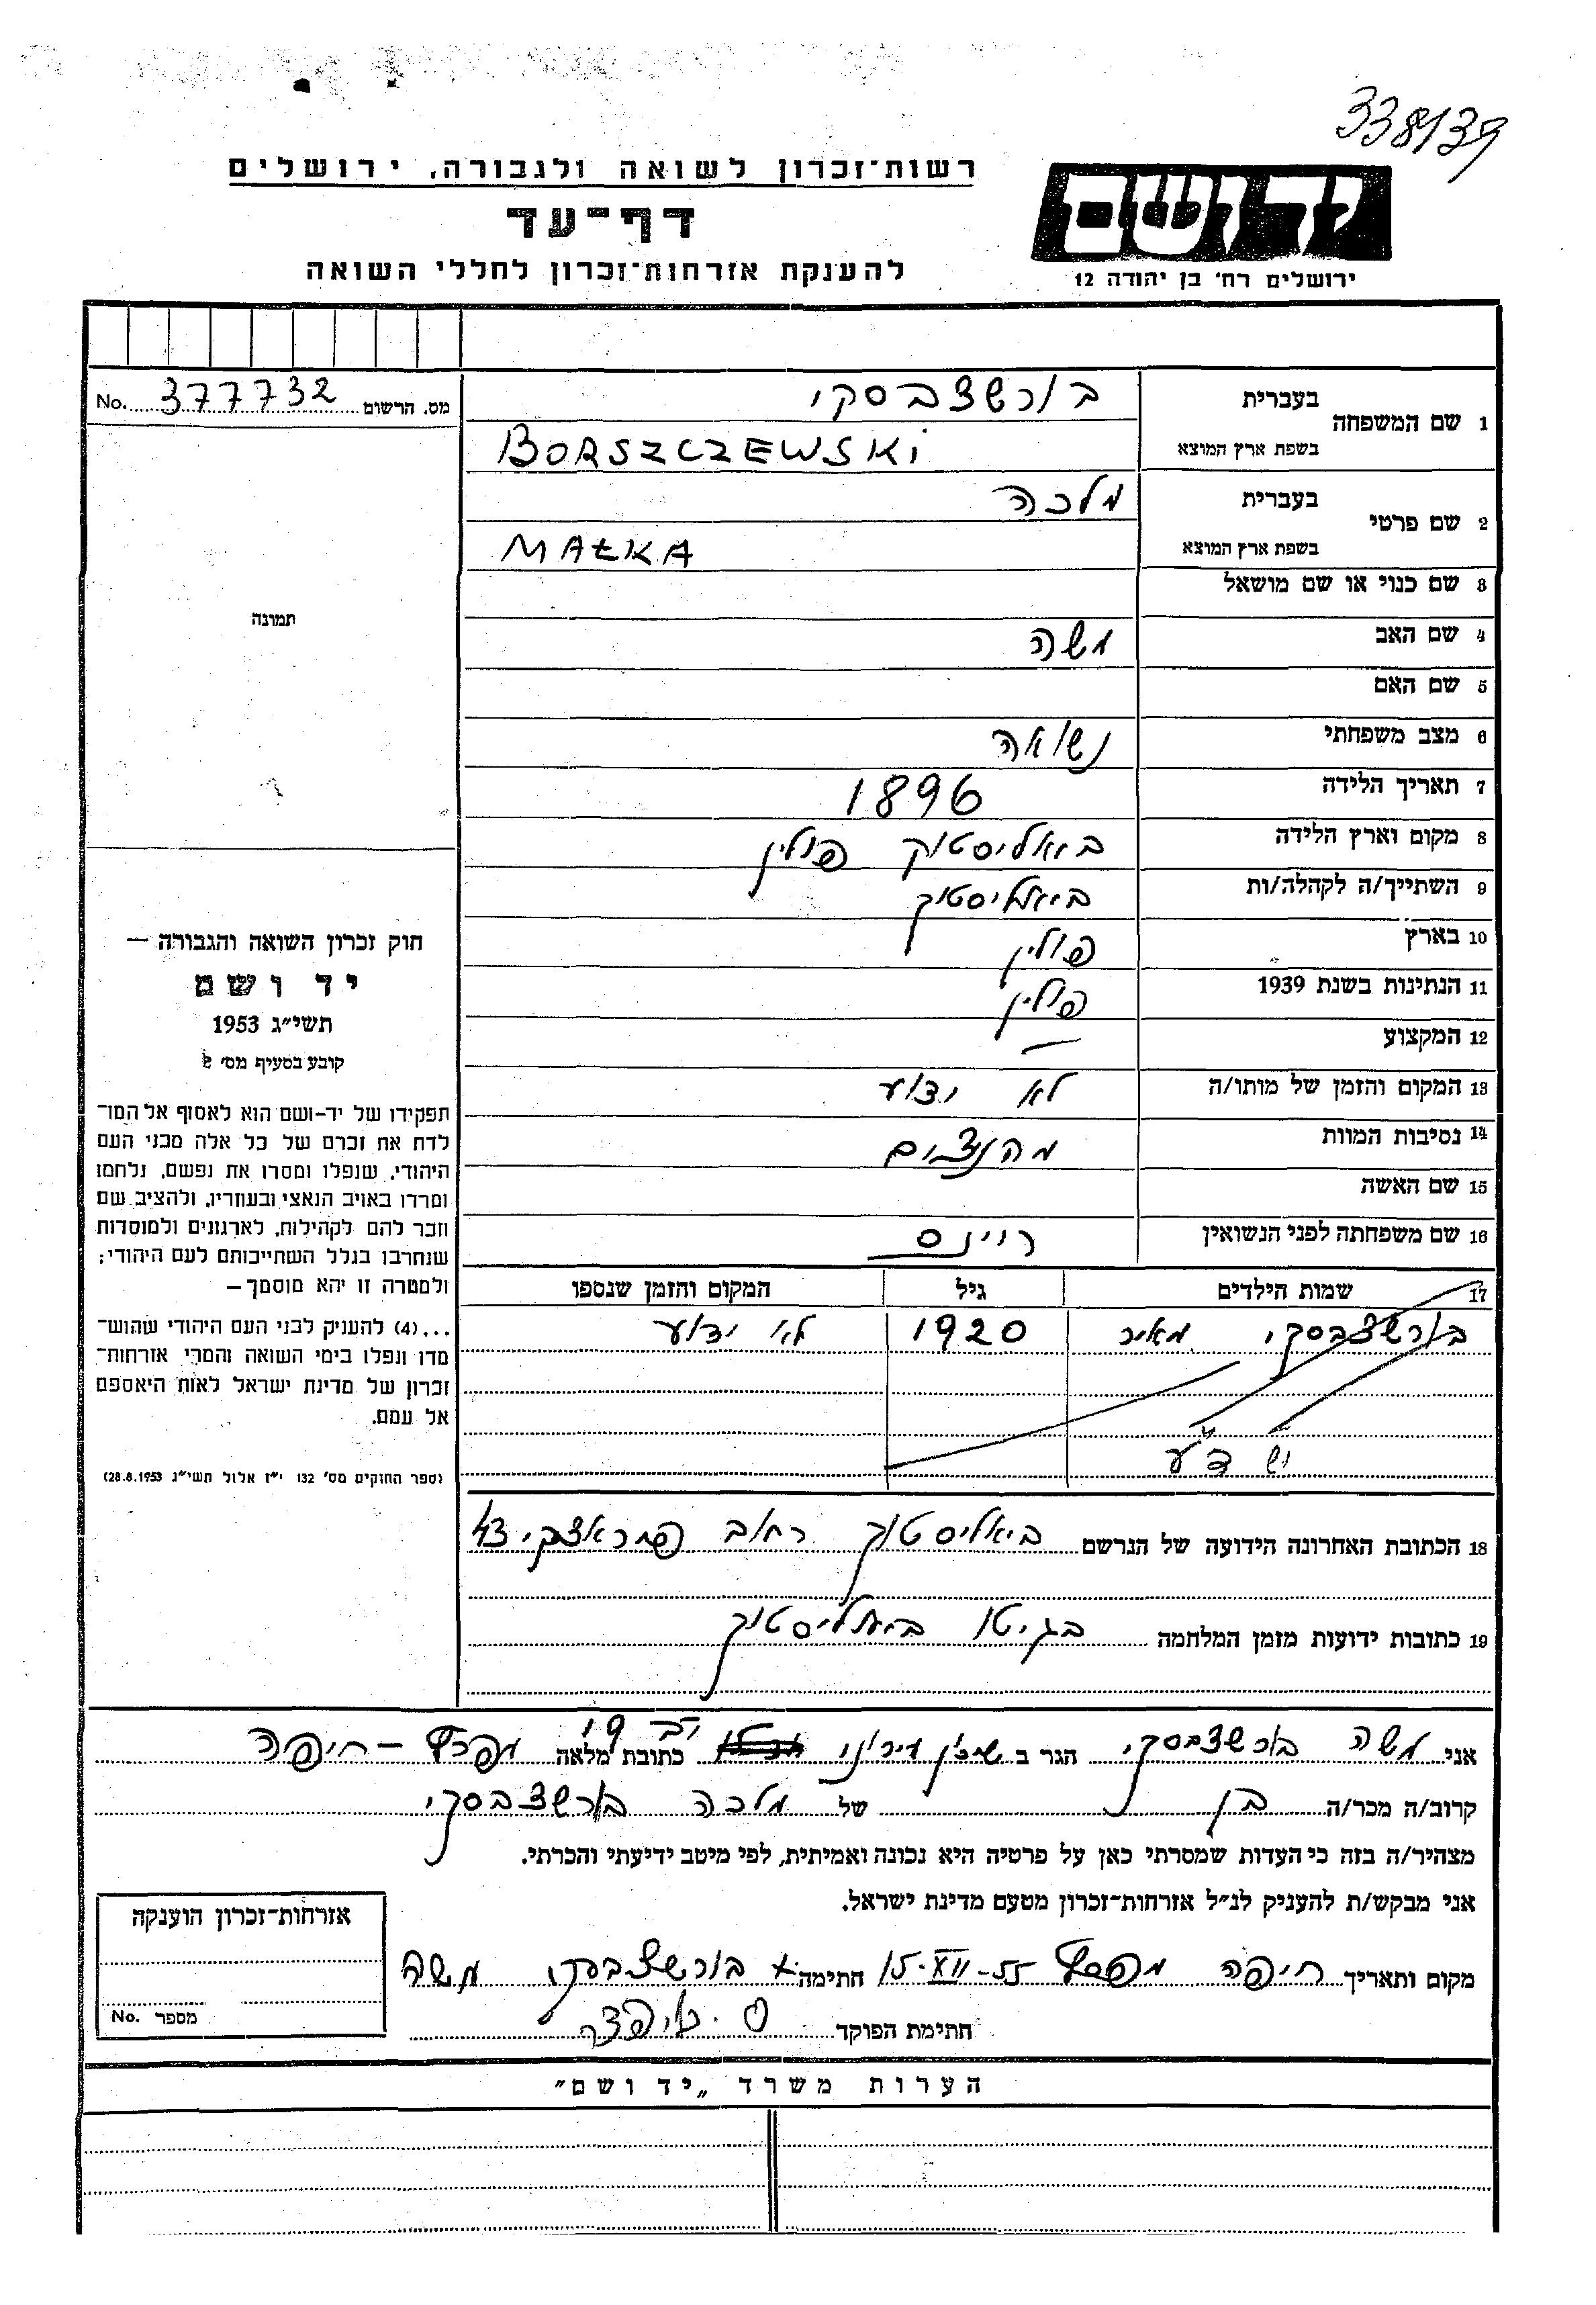 338/39
רשות־זכרון לשואה ולגבורה, ירושלים
דף־עד
להענקת אזרחות־זכרון לחללי השואה
יד ושם
ירושלים רח' בן יהודה 12
מס. הרשום 377732 No.
תמונה
חוק זכרון השואה והגבורה —
יד ושם
תשי״ג 1953
קובע בסעיף מס' 2
תפקידו של יד-ושם הוא לאסוף אל המו־
לדת את זכרם של כל אלה מבני העם
היהודי, שנפלו ומסרו את נפשם, נלחמו
ומרדו באויב הנאצי ובעוזריו, ולהציב שם
וזכר להם לקהילות, לארגונים ולמוסדות
שנחרבו בגלל השתייכותם לעם היהודי;
ולמטרה זו יהא מוסמך —
...(4) להעניק לבני העם היהודי שהוש־
מדו ונפלו בימי השואה והמרי אזרחות־
זכרון של מדינת ישראל לאות היאספם
אל עמם.
(ספר החוקים מס' 132 י״ז אלול תשי״ג 28.8.1953)
1 שם המשפחה בעברית בורשצבסקי
בשפת ארץ המוצא BORSZCZEWSKI
2 שם פרטי בעברית מלכה
בשפת ארץ המוצא MAŁKA
3 שם כנוי או שם מושאל
4 שם האב משה
5 שם האם
6 מצב משפחתי נשואה
7 תאריך הלידה 1896
8 מקום וארץ הלידה ביאליסטוק פולין
9 השתייך/ה לקהלה/ות ביאליסטוק
10 בארץ פולין
11 הנתינות בשנת 1939 פולין
12 המקצוע —
13 המקום והזמן של מותו/ה לא ידוע
14 נסיבות המוות מהנצים
15 שם האשה
16 שם משפחתה לפני הנשואין רוינס
17 שמות הילדים גיל המקום והזמן שנספו
בורשצבסקי מאיר 1920 לא ידוע
יש ד״ע
18 הכתובת האחרונה הידועה של הנרשם ביאליסטוק רחוב 43
19 כתובות ידועות מזמן המלחמה בגיטו ביאליסטוק
אני משה בורשצבסקי הגר ב כתובת מלאה מפרץ - חיפה
קרוב/ה מכר/ה בן של מלכה בורשצבסקי
מצהיר/ה בזה כי העדות שמסרתי כאן על פרטיה היא נכונה ואמיתית, לפי מיטב ידיעתי והכרתי.
אני מבקש/ת להעניק לנ״ל אזרחות־זכרון מטעם מדינת ישראל.
מקום ותאריך חיפה מפרץ 15-XII-55 חתימה x בורשצבסקי משה
חתימת הפוקד
אזרחות־זכרון הוענקה
מספר No.
הערות משרד „יד ושם״